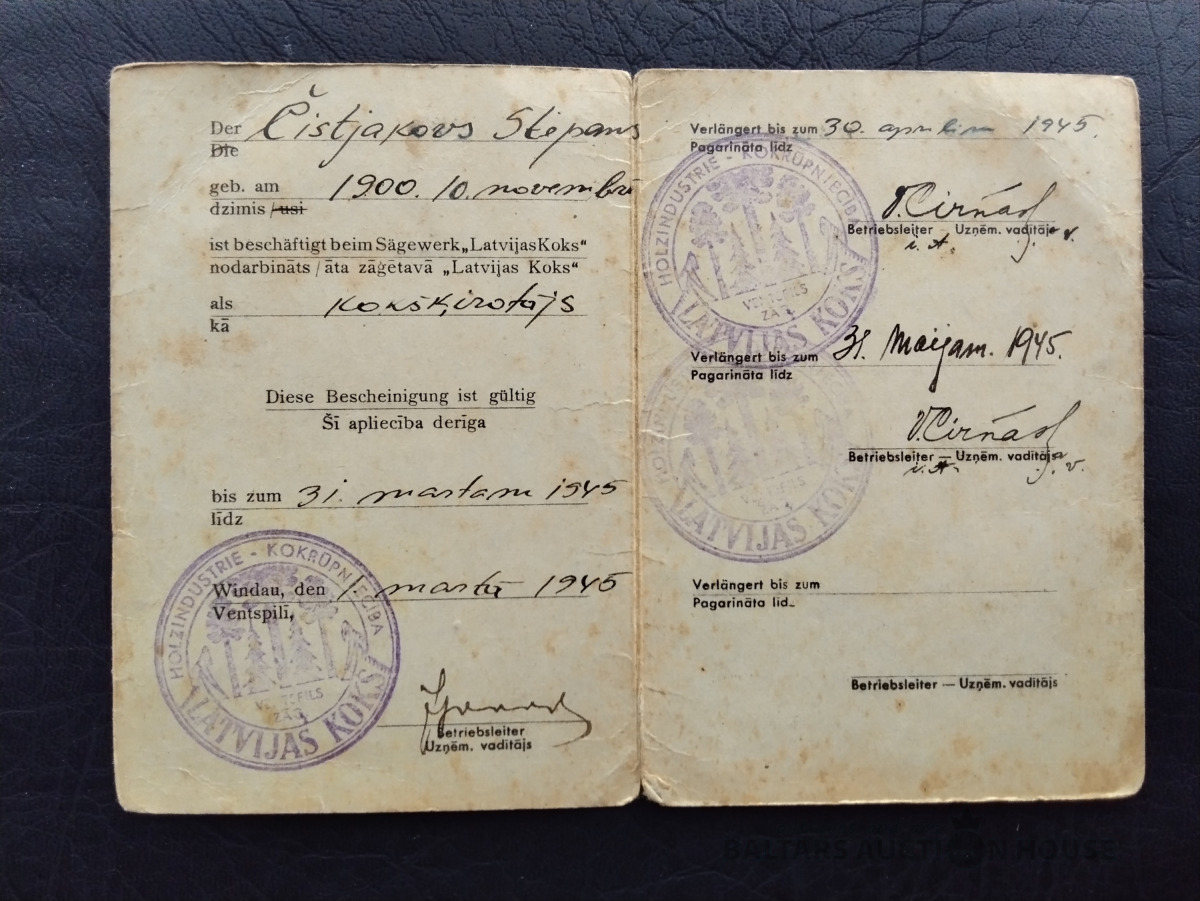 Der Čistjakovs Stepans
Die
geb. am 1900. 10. novembrī
dzimis / usi
ist beschäftigt beim Sägewerk „Latvijas Koks"
nodarbināts / āta zāģētavā „Latvijas Koks"
als kokšķirotājs
kā
Diese Bescheinigung ist gültig
Šī apliecība derīga
bis zum 31. martam 1945
līdz
Windau, den 1. martā 1945
Ventspilī,
HOLZINDUSTRIE - KOKRŪPNIECĪBA
VENTSPILS
ZĀĢ.
"LATVIJAS KOKS"
Betriebsleiter
Uzņēm. vadītājs
Verlängert bis zum 30. aprīlim 1945.
Pagarināta līdz
HOLZINDUSTRIE - KOKRŪPNIECĪBA
VENTSPILS
ZĀĢ.
"LATVIJAS KOKS"
Betriebsleiter — Uzņēm. vadītājs
i. A.
Verlängert bis zum 31. Maijam. 1945.
Pagarināta līdz
VENTSPILS
"LATVIJAS KOKS"
Betriebsleiter — Uzņēm. vadītājs
i. A.
Verlängert bis zum
Pagarināta līd
Betriebsleiter — Uzņēm. vadītājs
BALTARS AUCTION HOUSE